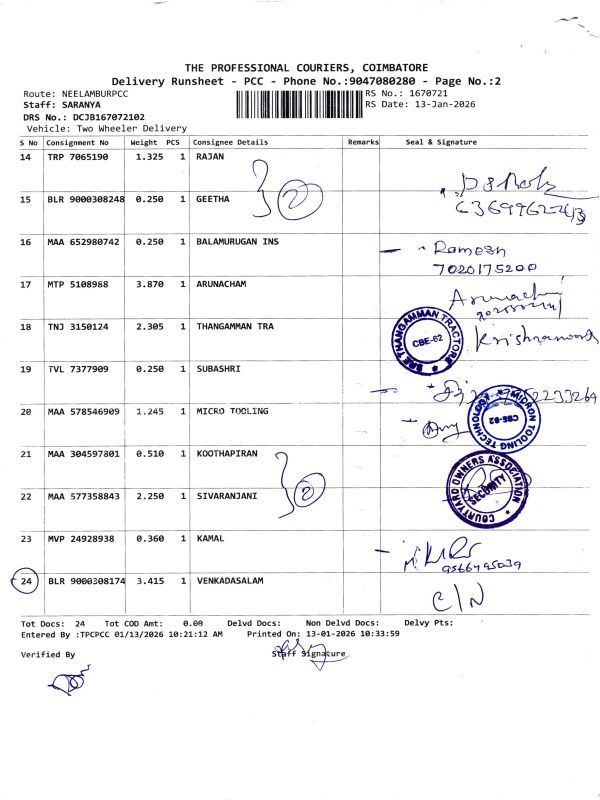 THE PROFESSIONAL COURIERS, COIMBATORE
Delivery Runsheet - PCC - Phone No.:9047080280 - Page No.:2
Route: NEELAMBURPCC
RS No.: 1670721
Staff: SARANYA
RS Date: 13-Jan-2026
DRS No.: DCJB167072102
Vehicle: Two Wheeler Delivery
S No Consignment No Weight PCS Consignee Details Remarks Seal & Signature
14 TRP 7065190 1.325 1 RAJAN
2
15 BLR 9000308248 0.250 1 GEETHA
16 MAA 652980742 0.250 1 BALAMURUGAN INS
Ramesh
7020175200
17 MTP 5108988 3.870 1 ARUNACHAM
18 TNJ 3150124 2.305 1 THANGAMMAN TRA
SREE THANGAMMAN TRACTORS
CBE-62
19 TVL 7377909 0.250 1 SUBASHRI
20 MAA 578546909 1.245 1 MICRO TOOLING
MIDRON TOOLING TECHNOLOGY
CBE-62
21 MAA 304597801 0.510 1 KOOTHAPIRAN
2
22 MAA 577358843 2.250 1 SIVARANJANI
COURTYARD OWNERS ASSOCIATION
SECURITY
23 MVP 24928938 0.360 1 KAMAL
9566495039
24 BLR 9000308174 3.415 1 VENKADASALAM
C/N
Tot Docs: 24 Tot COD Amt: 0.00 Delvd Docs: Non Delvd Docs: Delvy Pts:
Entered By :TPCPCC 01/13/2026 10:21:12 AM Printed On: 13-01-2026 10:33:59
Verified By
Staff Signature